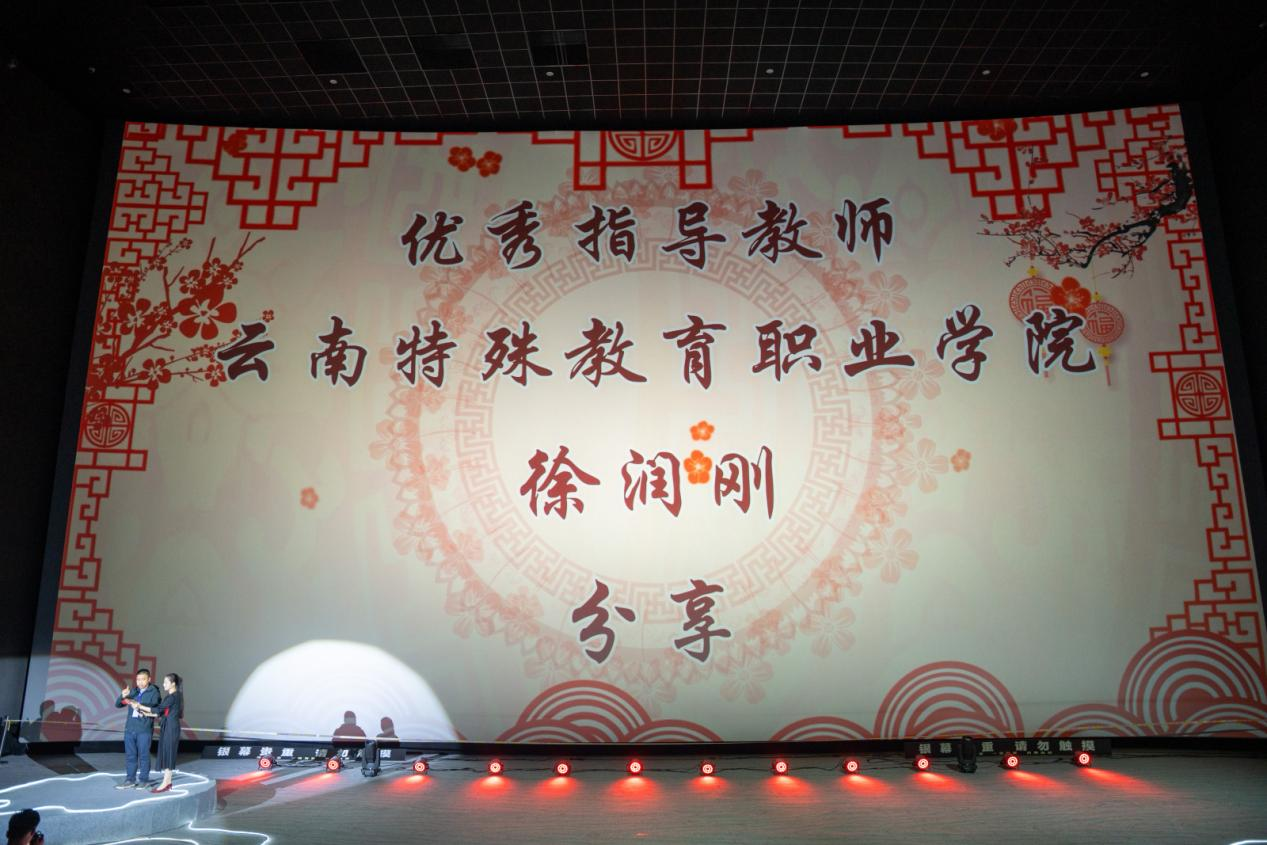 优秀指导教师
云南特殊教育职业学院
徐润刚
分享
银幕贵重 请勿触摸
银幕 重 请勿触摸